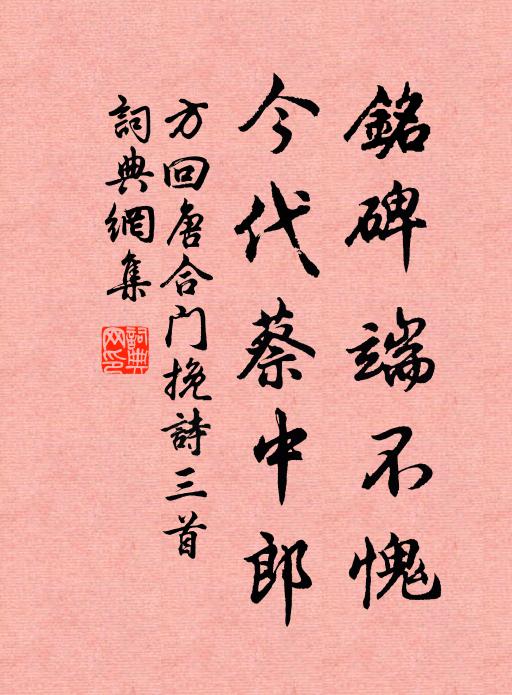 銘碑端不愧
今代蔡中郎
方回唐合门挽詩三首
詞典網集
詞典網印